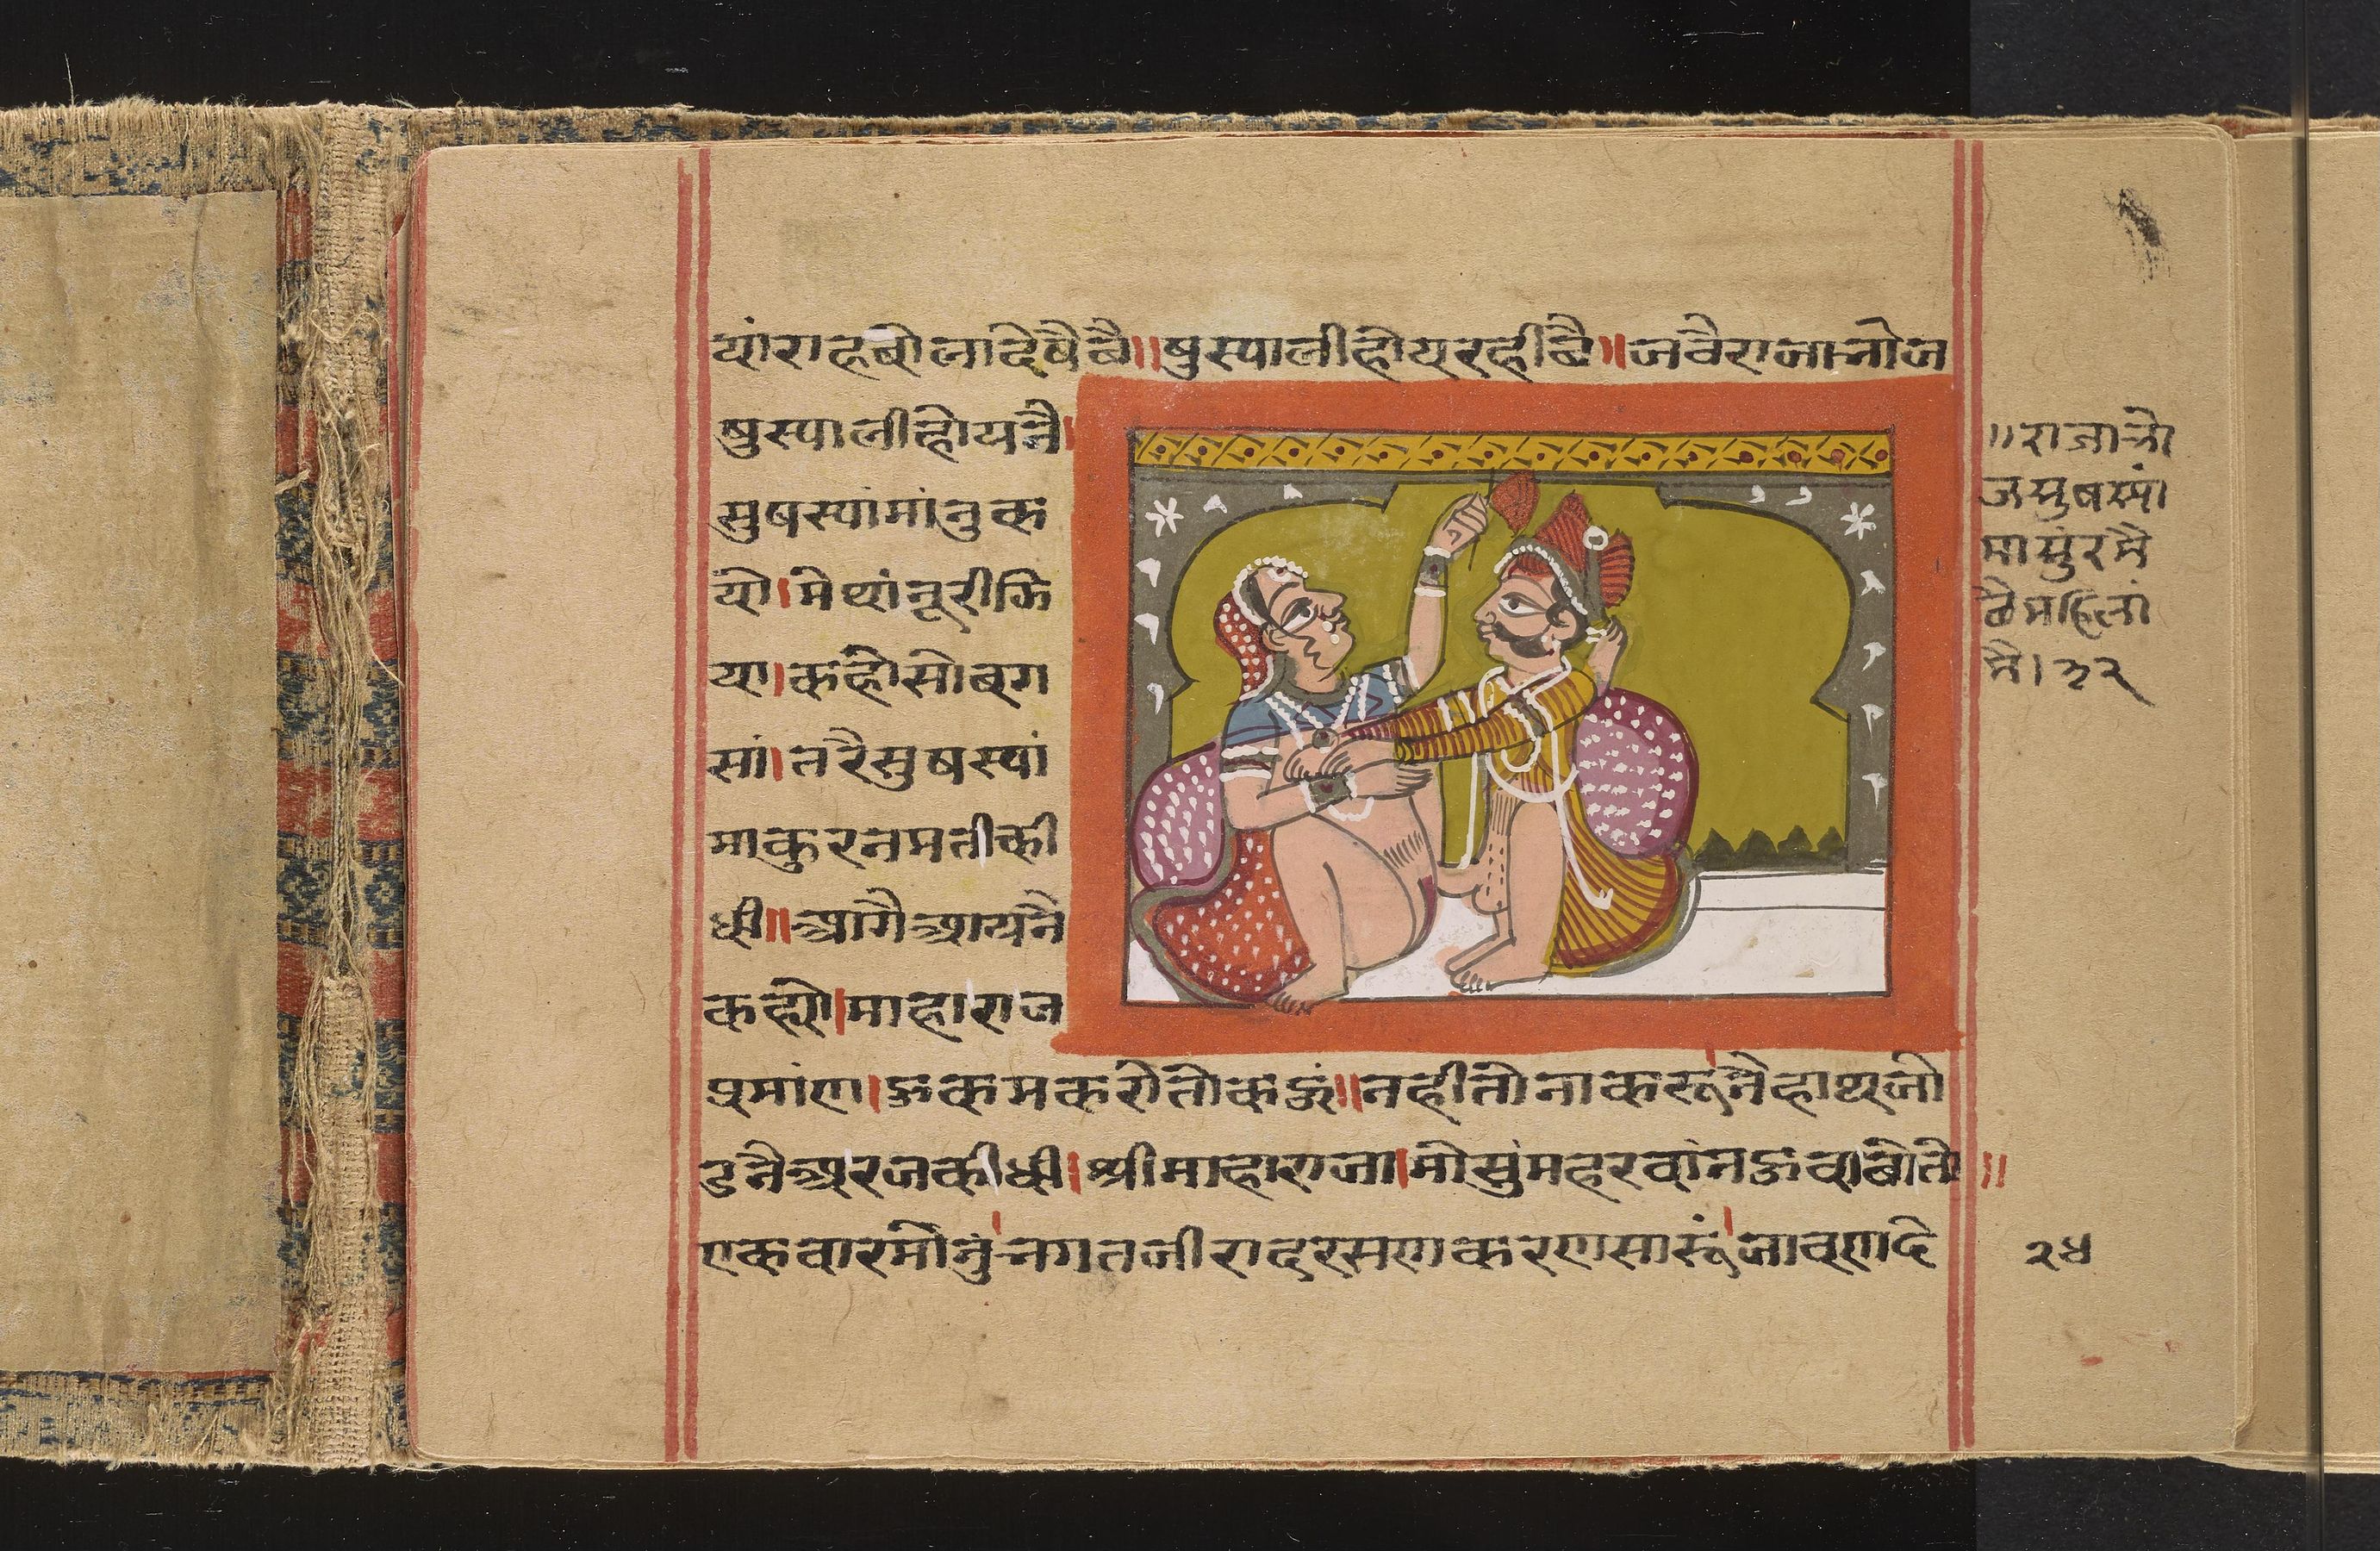 यांराहबोलादेषैबै॥षुस्यालीहोयरहीछै॥जवैराजाभोज
षुस्यालीहोयनै।
सुषस्यांमांनुक
यो।मेथांनूरीझि
या।कहोसोबग
सां॥तरैसुषस्यां
माकुरनसतीकी
धी॥आगैआयनै
कह्यो।माहाराज
प्रमांण।ऊकमकरोतोकऊं॥नहीतोनाकरूंनैहाथजो
डनैअरजकीधी।श्रीमाहाराजा।मोसुंमहरवांनऊवाछोतो॥
एकवारमोनुंनगतजीरादरसणकरणसारूंजावणदे
॥राजाभो
जसुषस्यां
मासुंरमै
छैमहिलां
मै।३२
२५